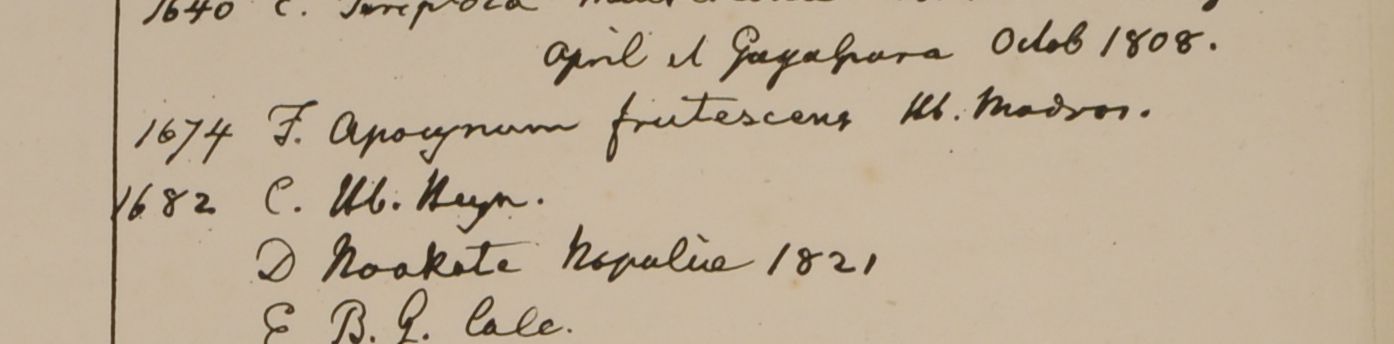 1640 C.
April et Gyalpara Octob 1808.
1674 F. Apocynum frutescens Hb. Madras.
1682 C. Hb. Heyn.
D Noakote Napaliae 1821
E B. G. Calc.